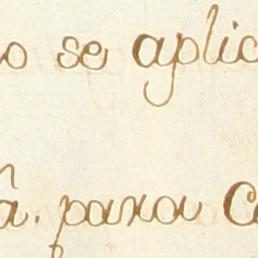 o se aplic
â. para C